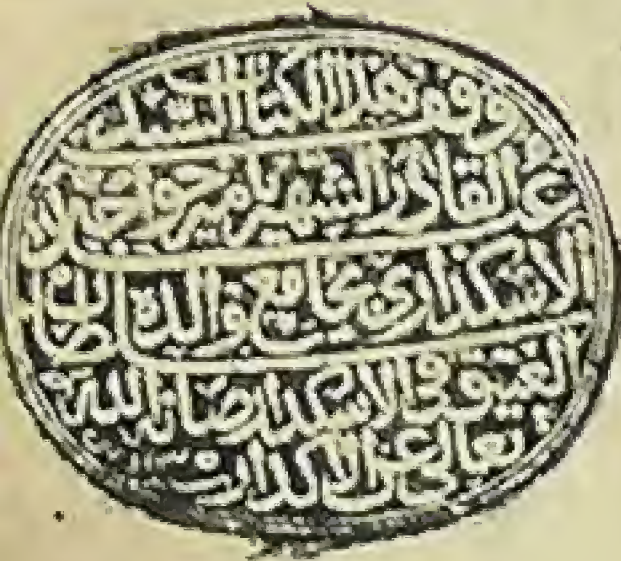 وقف هذا الكتاب السيد
عبد القادر الشهير بامير خواجه
الاسكدارى بجامع والدة
العتيق فى الاسكدار صانه الله
تعالى عن الاكدار